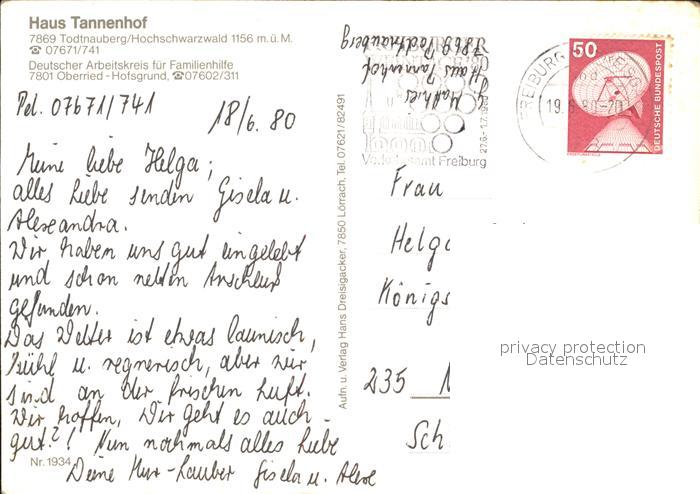 Haus Tannenhof
7869 Todtnauberg/Hochschwarzwald 1156 m.ü.M.
☎ 07671/741
Deutscher Arbeitskreis für Familienhilfe
7801 Oberried - Hofsgrund, ☎ 07602/311
Tel. 07671/741
18/6. 80
Meine liebe Helga;
alles Liebe senden Gisela u.
Alexandra.
Wir haben uns gut eingelebt
und schon netten Anschluß
gefunden.
Das Wetter ist etwas launisch,
kühl u. regnerisch, aber wir
sind an der frischen Luft.
Wir hoffen, Dir geht es auch
gut?! Nun nochmals alles Liebe
Deine Kur-Lauber Gisela u. Alexe
Nr. 1934
Aufn. u. Verlag Hans Dreisigacker, 7850 Lörrach, Tel. 07621/82491
Haus Tannenhof
7869 Todtnauberg
27.6.-1.7.1980
Verkehrsamt Freiburg
FREIBURG
19.6.80-20
50
DEUTSCHE BUNDESPOST
Frau
Helga
Königs
235
Sch
privacy protection
Datenschutz